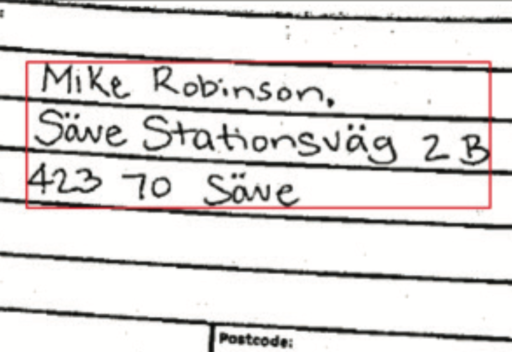 Mike Robinson.
Säve Stationsväg 2 B
423 70 Säve
Postcode: